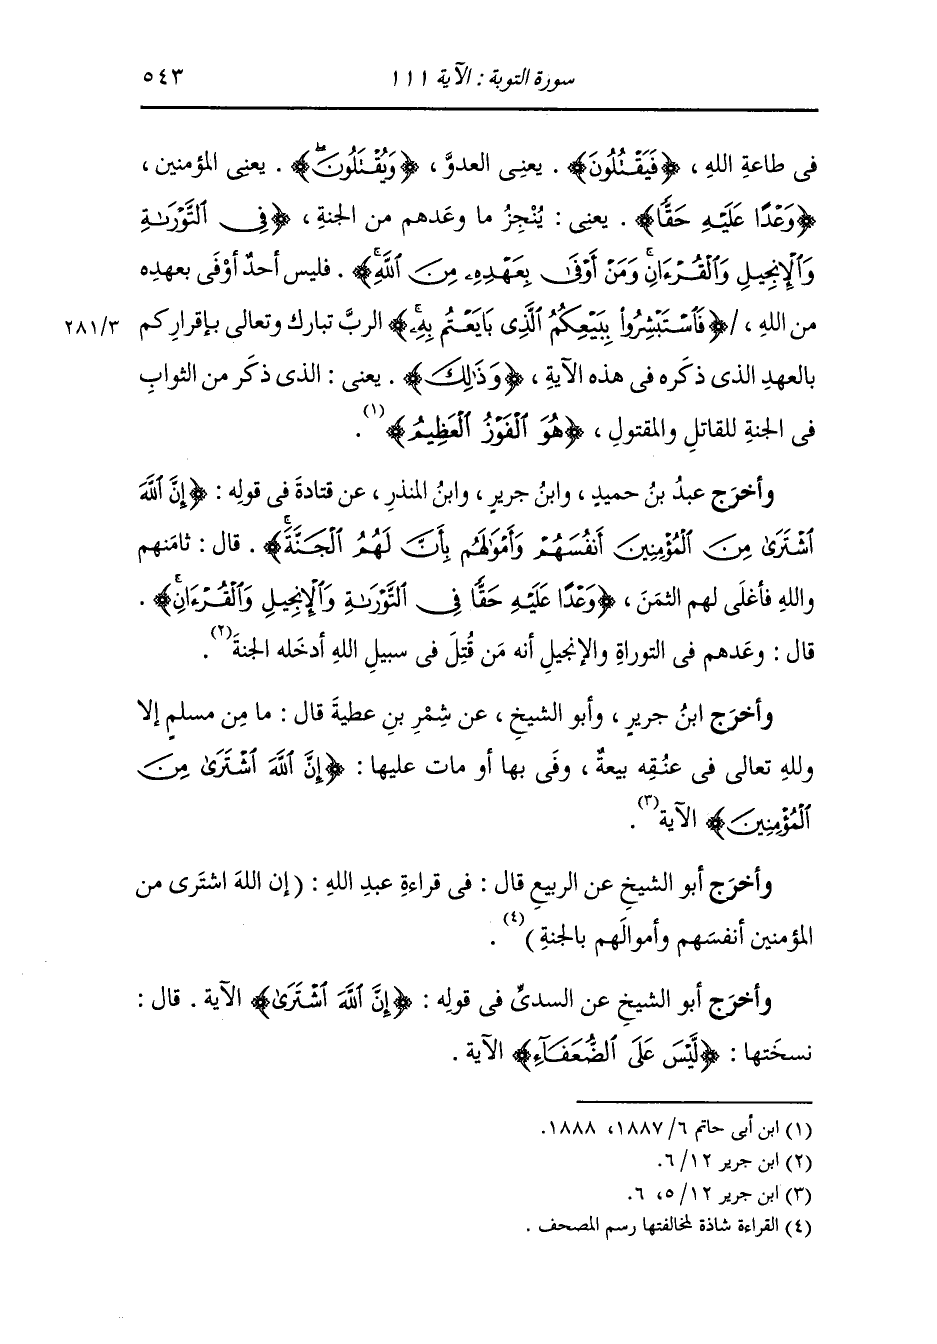 سورة التوبة : الآية ١١١ ٥٤٣
فى طاعةِ اللهِ ، ﴿فَيَقْتُلُونَ﴾ . يعنِى العدوَّ ، ﴿وَيُقْتَلُونَۖ﴾ . يعنِى المؤمنين ،
﴿وَعْدًا عَلَيْهِ حَقًّا﴾ . يعنِى : يُنْجِزُ ما وعَدهم من الجنةِ ، ﴿فِى ٱلتَّوْرَىٰةِ
وَٱلْإِنجِيلِ وَٱلْقُرْءَانِۚ وَمَنْ أَوْفَىٰ بِعَهْدِهِۦ مِنَ ٱللَّهِۚ﴾ . فليس أحدٌ أوْفَى بعهدِه
من اللهِ ، /﴿فَٱسْتَبْشِرُوا۟ بِبَيْعِكُمُ ٱلَّذِى بَايَعْتُم بِهِۦۚ﴾ الربَّ تبارك وتعالى بإقرارِكم ٢٨١/٣
بالعهدِ الذى ذكَره فى هذه الآيةِ ، ﴿وَذَٰلِكَ﴾ . يعنى : الذى ذكَر من الثوابِ
فى الجنةِ للقاتلِ والمقتولِ ، ﴿هُوَ ٱلْفَوْزُ ٱلْعَظِيمُ﴾(١) .
وأخرَج عبدُ بنُ حميدٍ ، وابنُ جريرٍ ، وابنُ المنذرِ ، عن قتادةَ فى قولِه : ﴿إِنَّ ٱللَّهَ
ٱشْتَرَىٰ مِنَ ٱلْمُؤْمِنِينَ أَنفُسَهُمْ وَأَمْوَٰلَهُم بِأَنَّ لَهُمُ ٱلْجَنَّةَۚ﴾ . قال : ثامَنهم
واللهِ فأغلَى لهم الثمَنَ ، ﴿وَعْدًا عَلَيْهِ حَقًّا فِى ٱلتَّوْرَىٰةِ وَٱلْإِنجِيلِ وَٱلْقُرْءَانِۚ﴾ .
قال : وعَدهم فى التوراةِ والإنجيلِ أنه مَن قُتِلَ فى سبيلِ اللهِ أدخَله الجنةَ(٢) .
وأخرَج ابنُ جريرٍ ، وأبو الشيخِ ، عن شِمْرِ بنِ عطيةَ قال : ما مِن مسلمٍ إلا
وللهِ تعالى فى عنُقِه بيعةٌ ، وفَى بها أو مات عليها : ﴿إِنَّ ٱللَّهَ ٱشْتَرَىٰ مِنَ
ٱلْمُؤْمِنِينَ﴾ الآية(٣) .
وأخرَج أبو الشيخِ عن الربيعِ قال : فى قراءةِ عبدِ اللهِ : (إن اللهَ اشتَرى من
المؤمنين أنفسَهم وأموالَهم بالجنةِ)(٤) .
وأخرَج أبو الشيخِ عن السدىِّ فى قولِه : ﴿إِنَّ ٱللَّهَ ٱشْتَرَىٰ﴾ الآية . قال :
نسخَتها : ﴿لَّيْسَ عَلَى ٱلضُّعَفَآءِ﴾ الآية .
(١) ابن أبى حاتم ١٨٨٧/٦، ١٨٨٨.
(٢) ابن جرير ٦/١٢.
(٣) ابن جرير ٥/١٢، ٦.
(٤) القراءة شاذة لمخالفتها رسم المصحف .